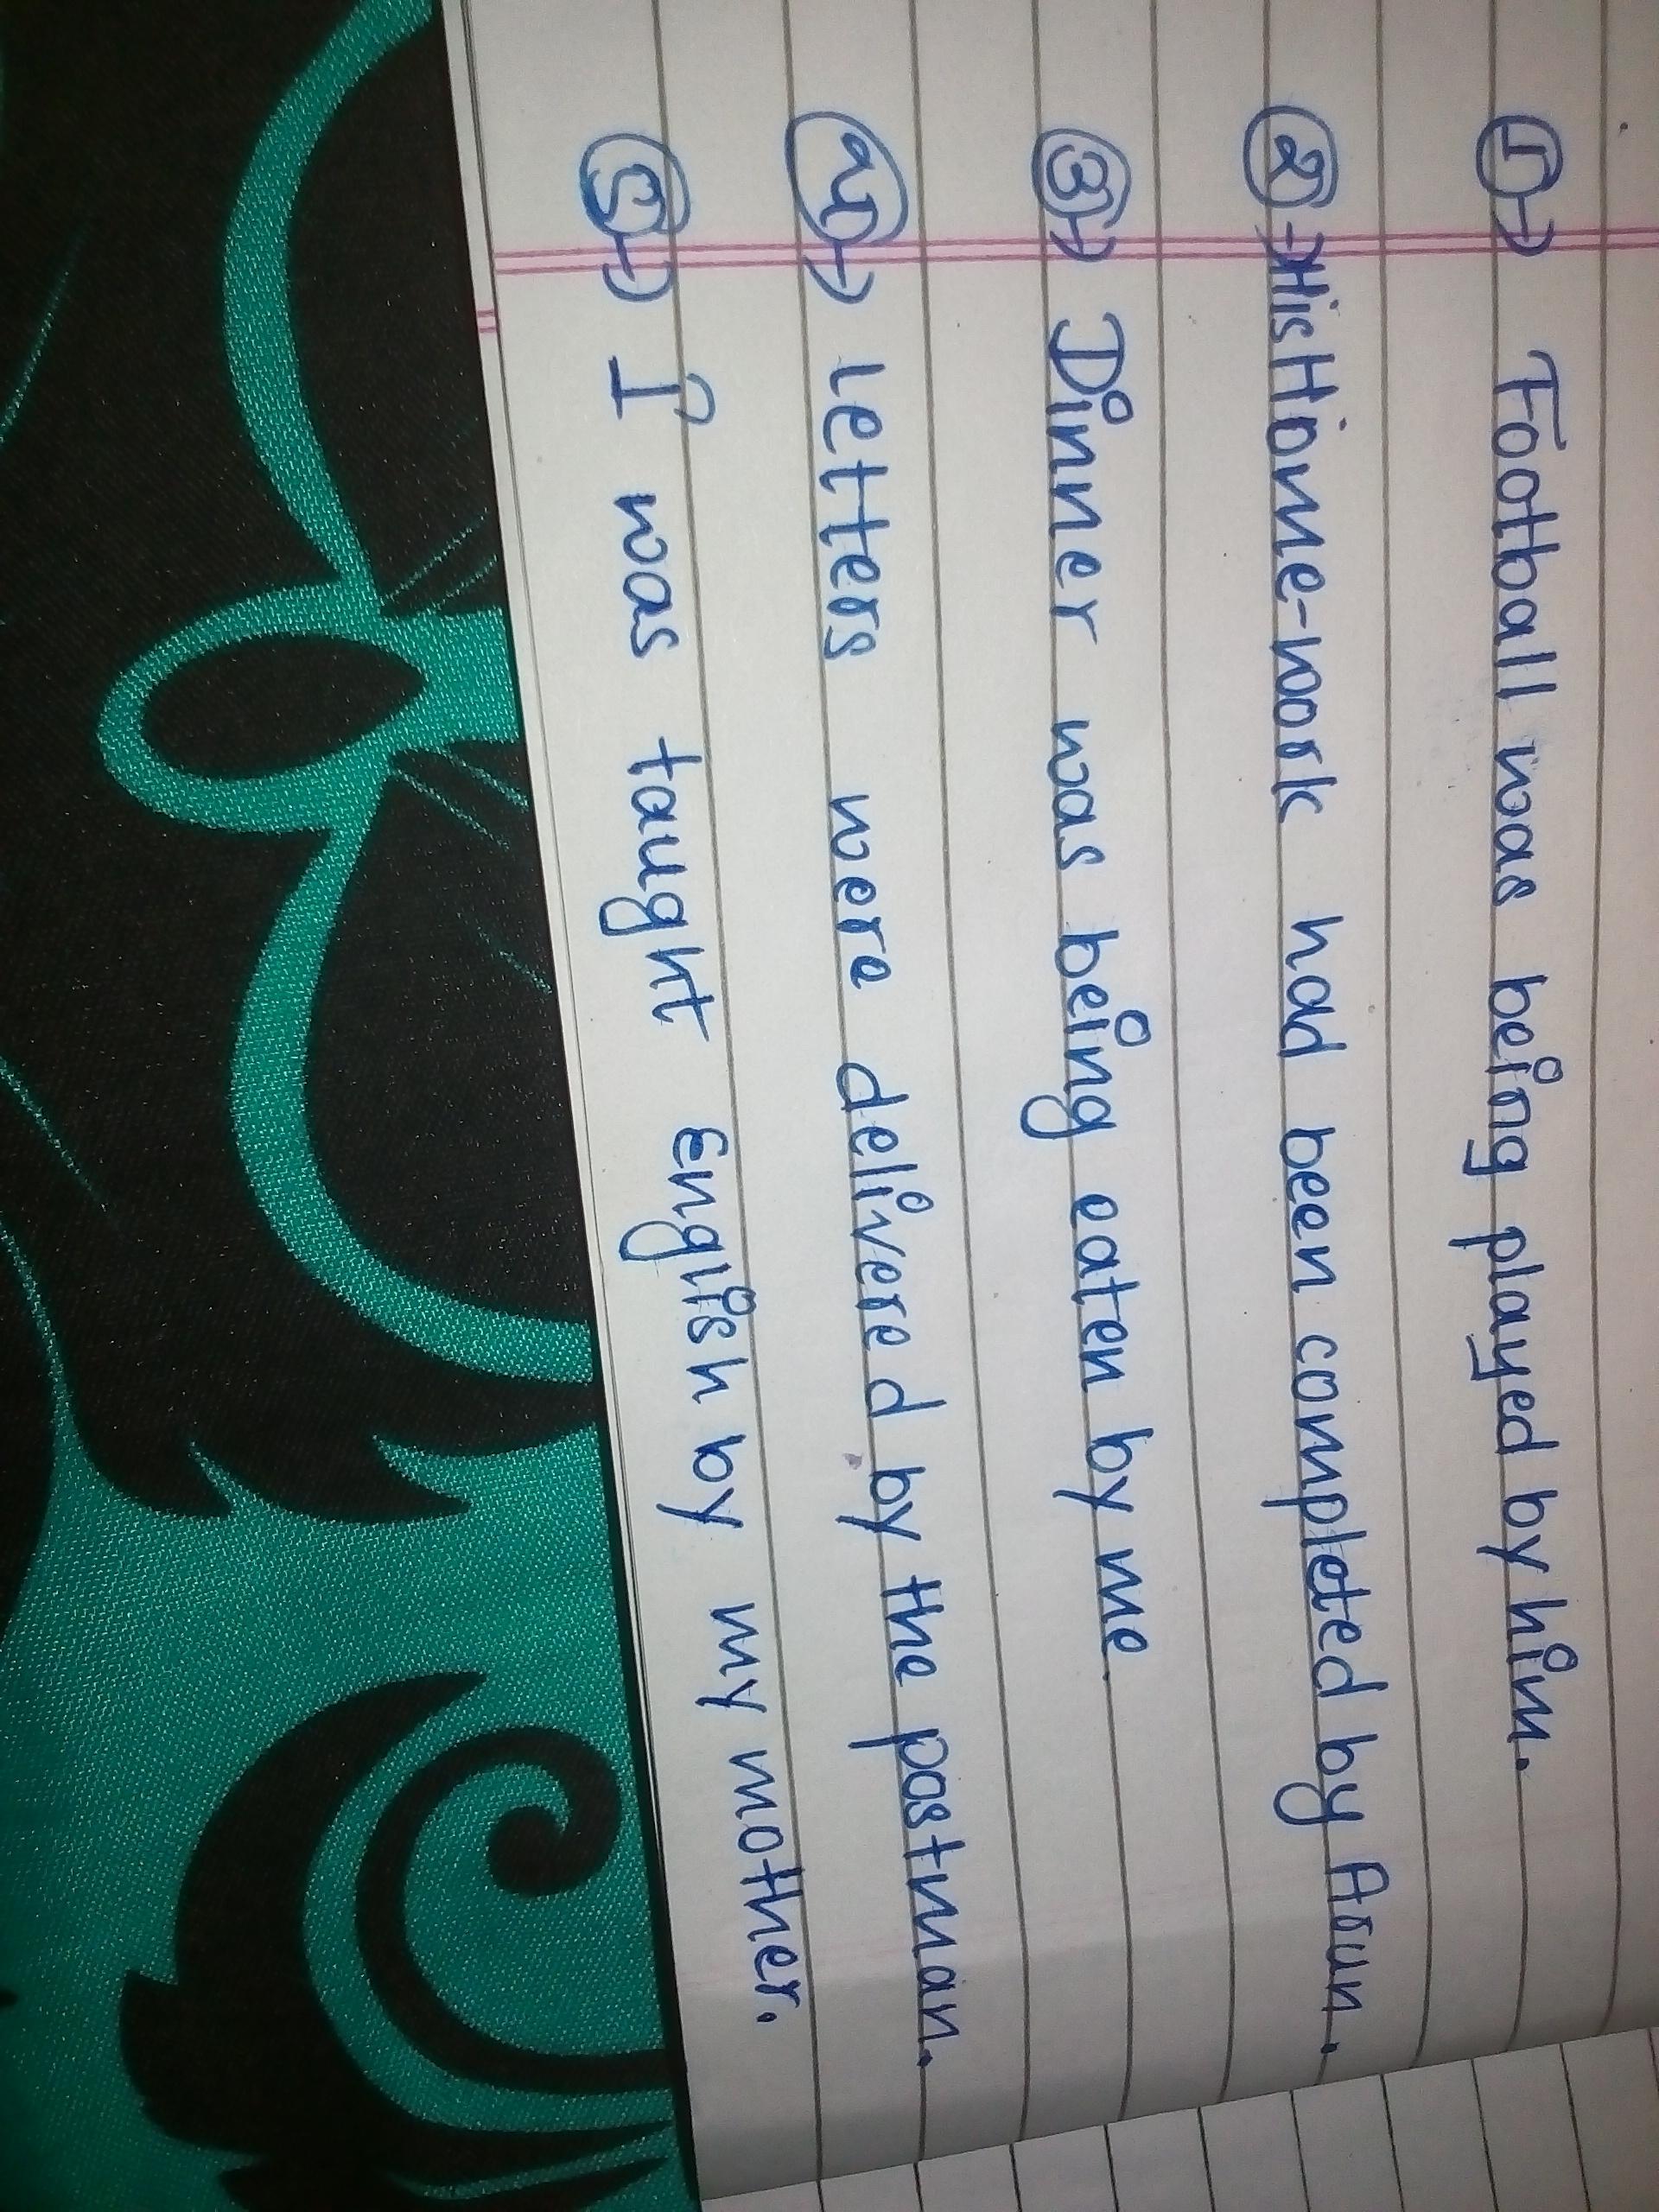 1→ Football was being played by him.
2→ His Home-work had been completed by Arun.
3→ Dinner was being eaten by me.
4→ Letters were delivered by the postman.
5→ I was taught English by my mother.